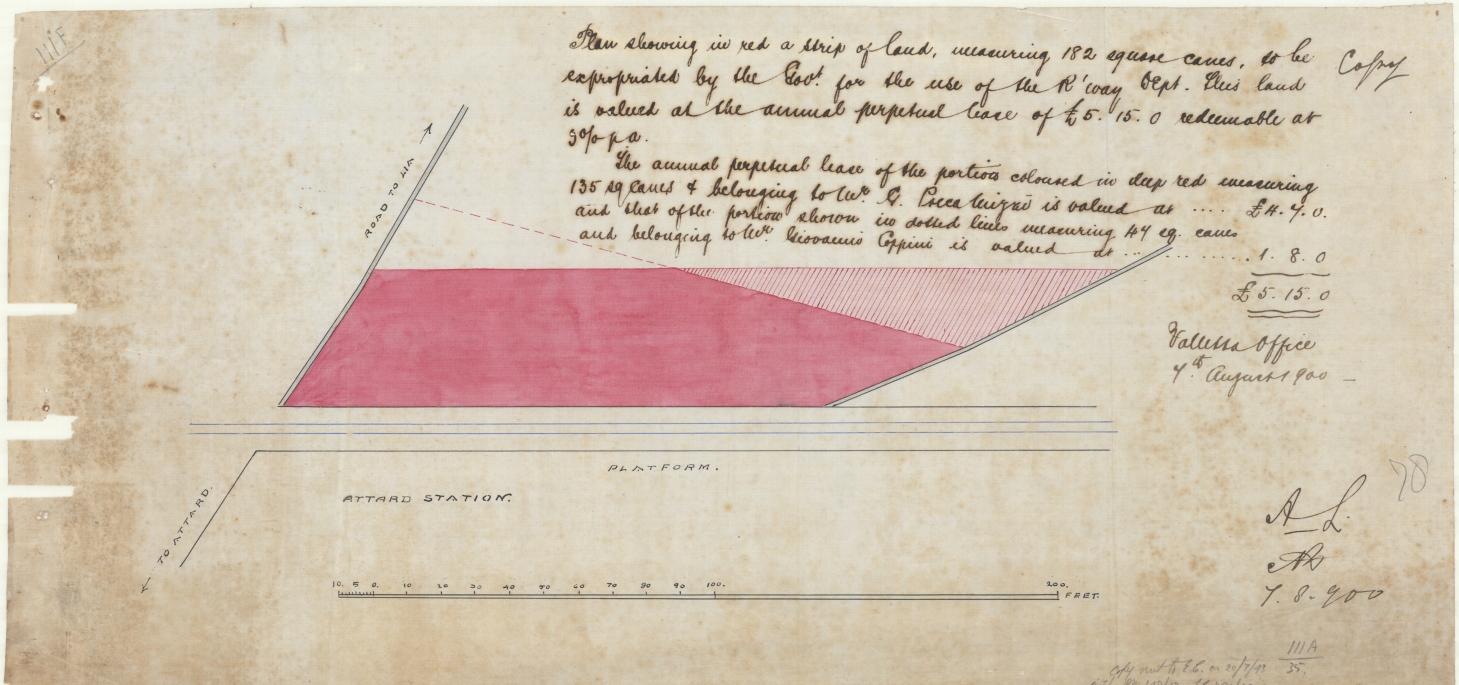 111F
Plan showing in red a strip of land, measuring 182 square canes, to be
expropriated by the Govt. for the use of the R'way Dept. This land
is valued at the annual perpetual lease of £5. 15. 0 redeemable at
3% p.a.
The annual perpetual lease of the portion coloured in deep red measuring
135 sq canes & belonging to Mr. G. is valued at .... £4. 7. 0.
and that of the portion shown in dotted lines measuring 47 sq. canes
and belonging to Mr. Giovanni Coppini is valued at .............. 1. 8. 0
£5. 15. 0
Copy
Valletta Office
7th August 1900
ROAD TO LIA
PLATFORM.
ATTARD STATION.
TO ATTARD.
10. 5 0. 10 20 30 40 50 60 70 80 90 100. 200.
FEET.
78
A L.
7. 8. 900
111A
35.